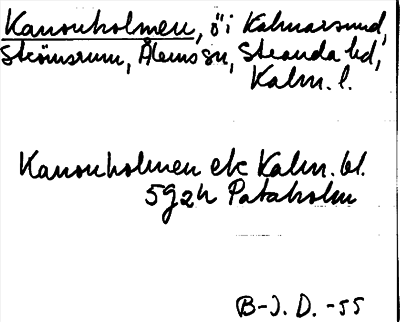 Kanonholmen, ö i Kalmarsund,
Strömsrum, Ålems sn, Stranda hd,
Kalm. l.
Kanonholmen ek Kalm. bl.
5g2h Pataholm
B-J. D. -55